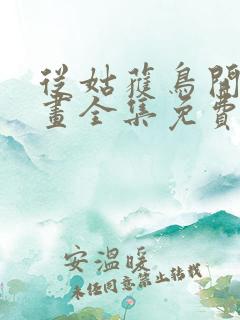 從姑蒦鳥開
畫全集免費
安溫暖
未经同意禁止转载